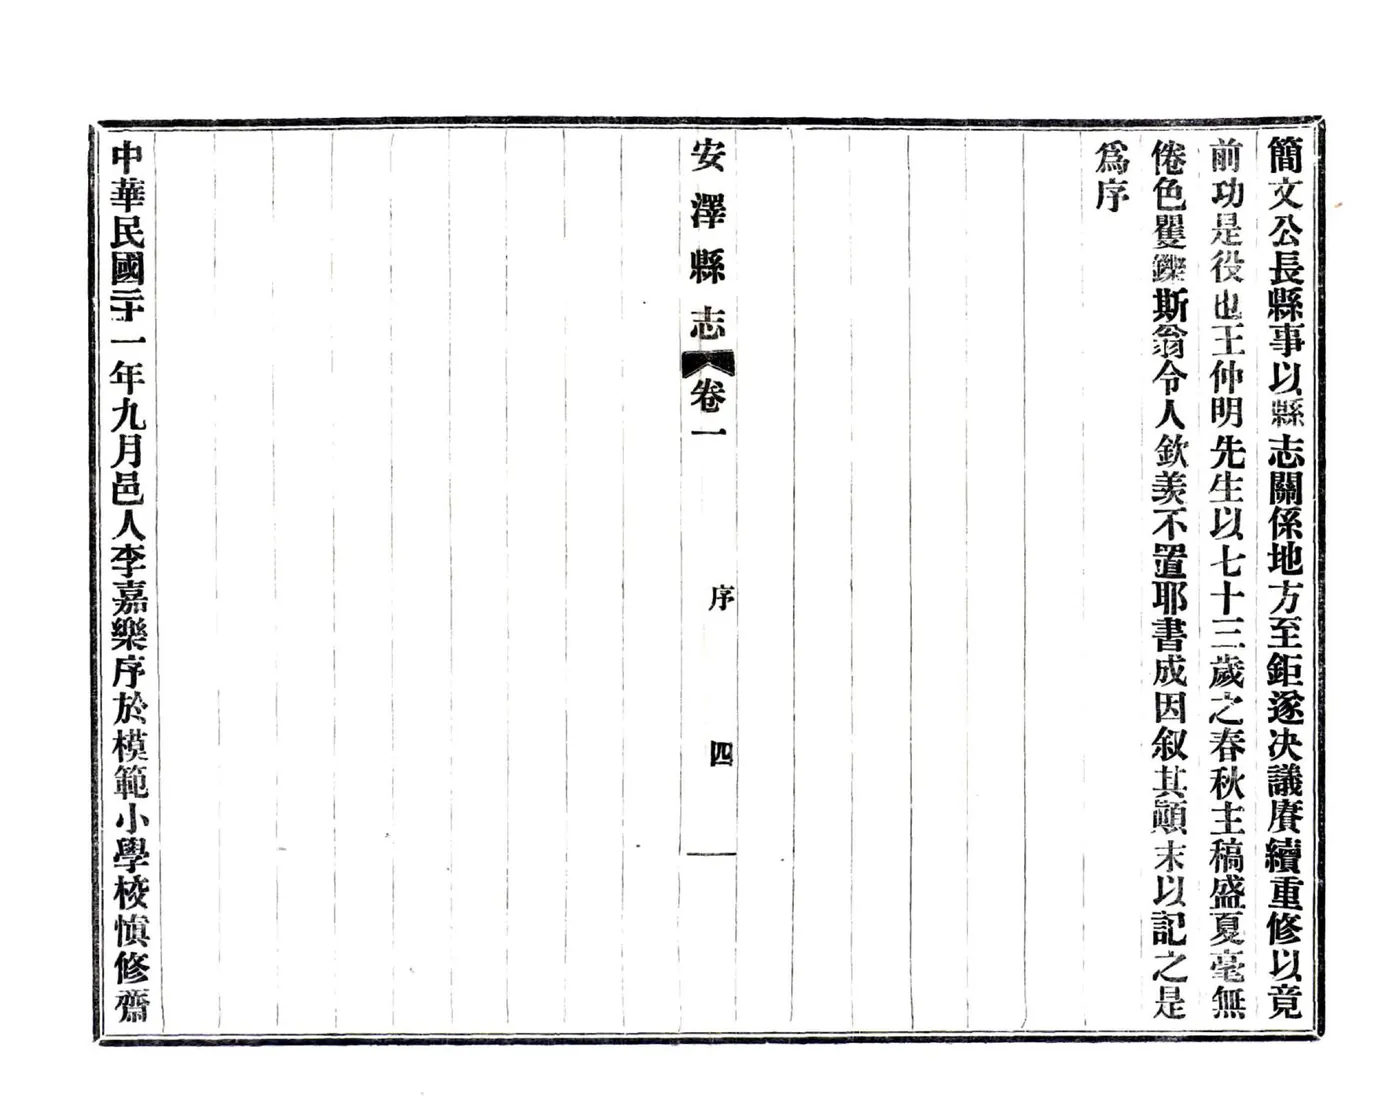 簡文公長縣事以縣志關係地方至鉅遂决議賡續重修以竟
前功是役也王仲明先生以七十三歲之春秋主稿盛夏毫無
倦色矍鑠斯翁令人欽羨不置耶書成因叙其顛末以記之是
爲序
安澤縣志 卷一 序 四
中華民國二十一年九月邑人李嘉樂序於模範小學校慎修齋